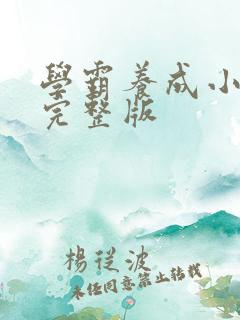 學霸養成小
完整版
楊從波
未经同意禁止转载